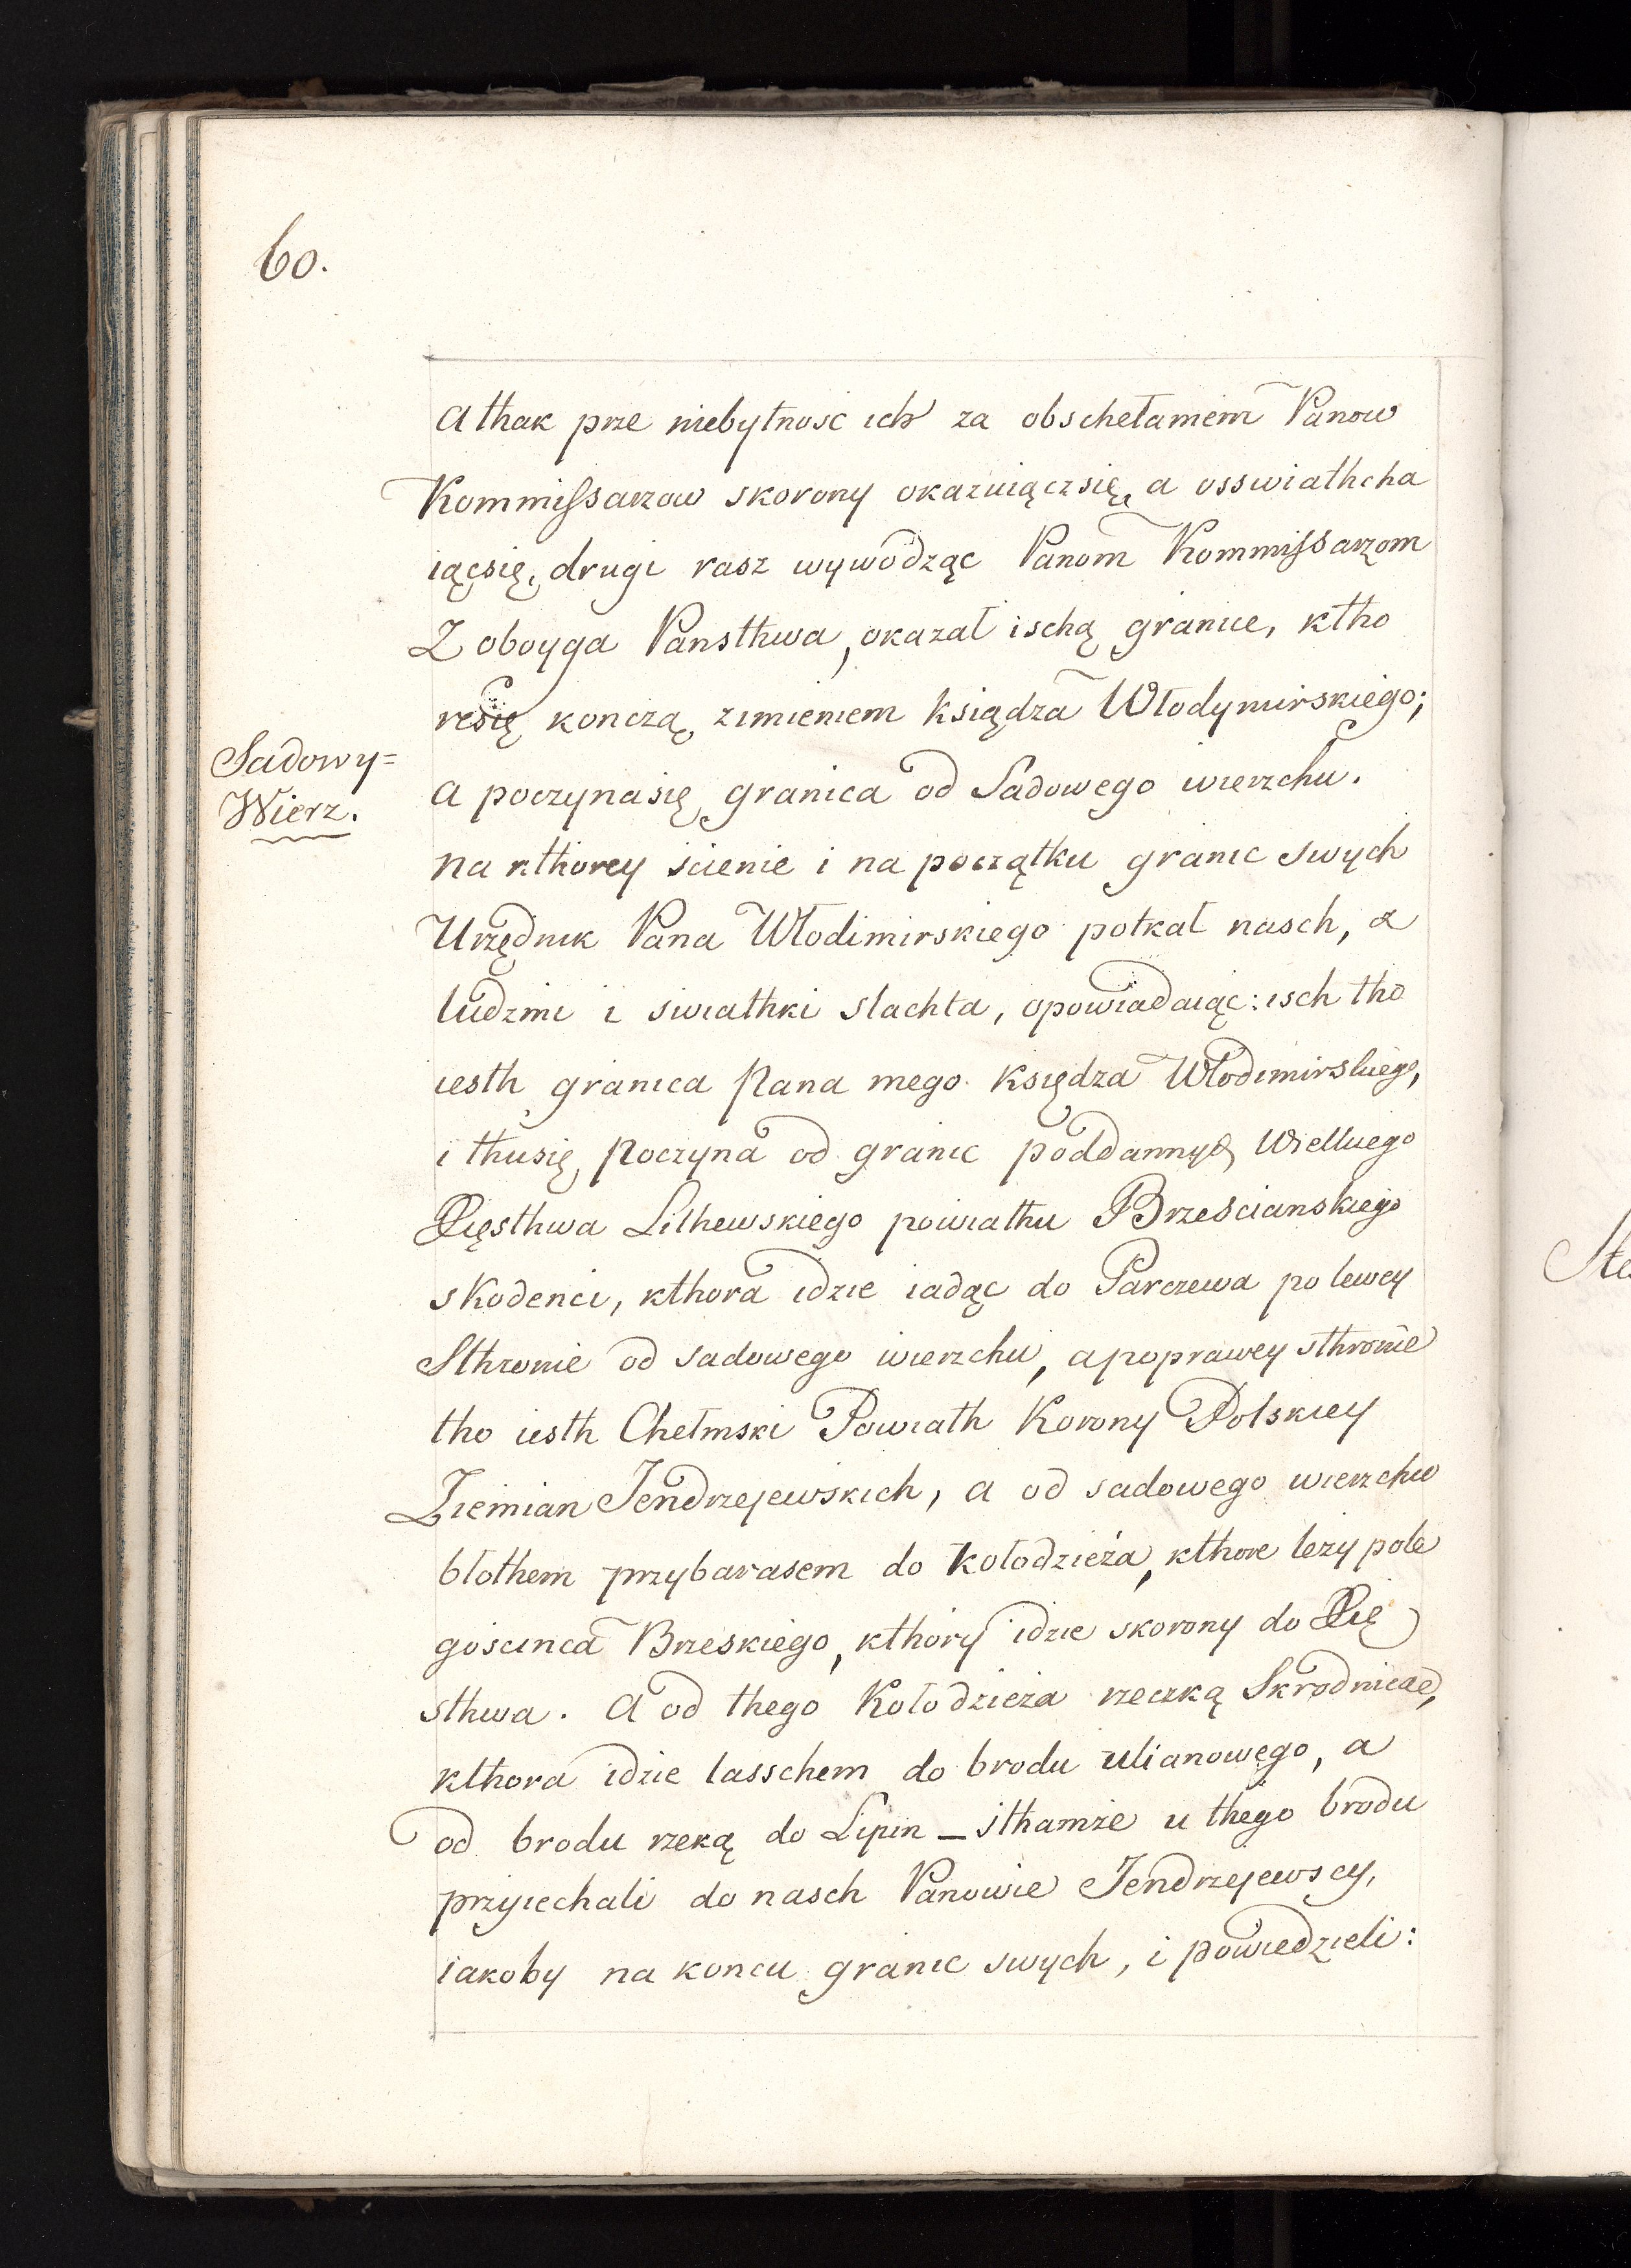 60.
a thak prze niebytnosc ich za obschełaniem Panow
Kommissarzow skorony okazuiączsię, a osswiathcha
iącsię, drugi rasz wywodząc Panom Kommissarzom
Z oboyga Pansthwa, okazał ischą granice, ktho
resię konczą zimieniem księdza Włodymirskiego;
Sadowy=
Wierz.
a poczynasię granica od Sadowego wierzchu.
na kthorey scienie i na początku granic swych
Urzędnik Pana Włodimirskiego potkał nasch, z
ludzmi i swiathki slachta, opowiadaiąc: isch tho
iesth granica Pana mego księdza Włodimirskiego,
i thusię poczyna od granic poddannych Wielkiego
Xięsthwa Lithewskiego powiathu Brzescianskiego
skodenci, kthora idzie iadąc do Parczewa po lewey
Sthronie od sadowego wierzchu, apoprawey sthronie
tho iesth Chełmski Powiath Korony Polskiey
Ziemian Jendrzejewskich, a od sadowego wierzchu
błothem przybarasem do kołodzieża, kthore leży pole
goscinca Brzeskiego, kthory idzie skorony do Xię
sthwa. A od thego Kołodzieża rzeczką Skrodnicae,
kthora idzie lasschem do brodu ulianowego, a
od brodu rzeką do Lipin _ ithamże u thego brodu
przyiechali do nasch Panowie Jendrzejewscy,
iakoby na koncu granic swych, i powiedzieli: